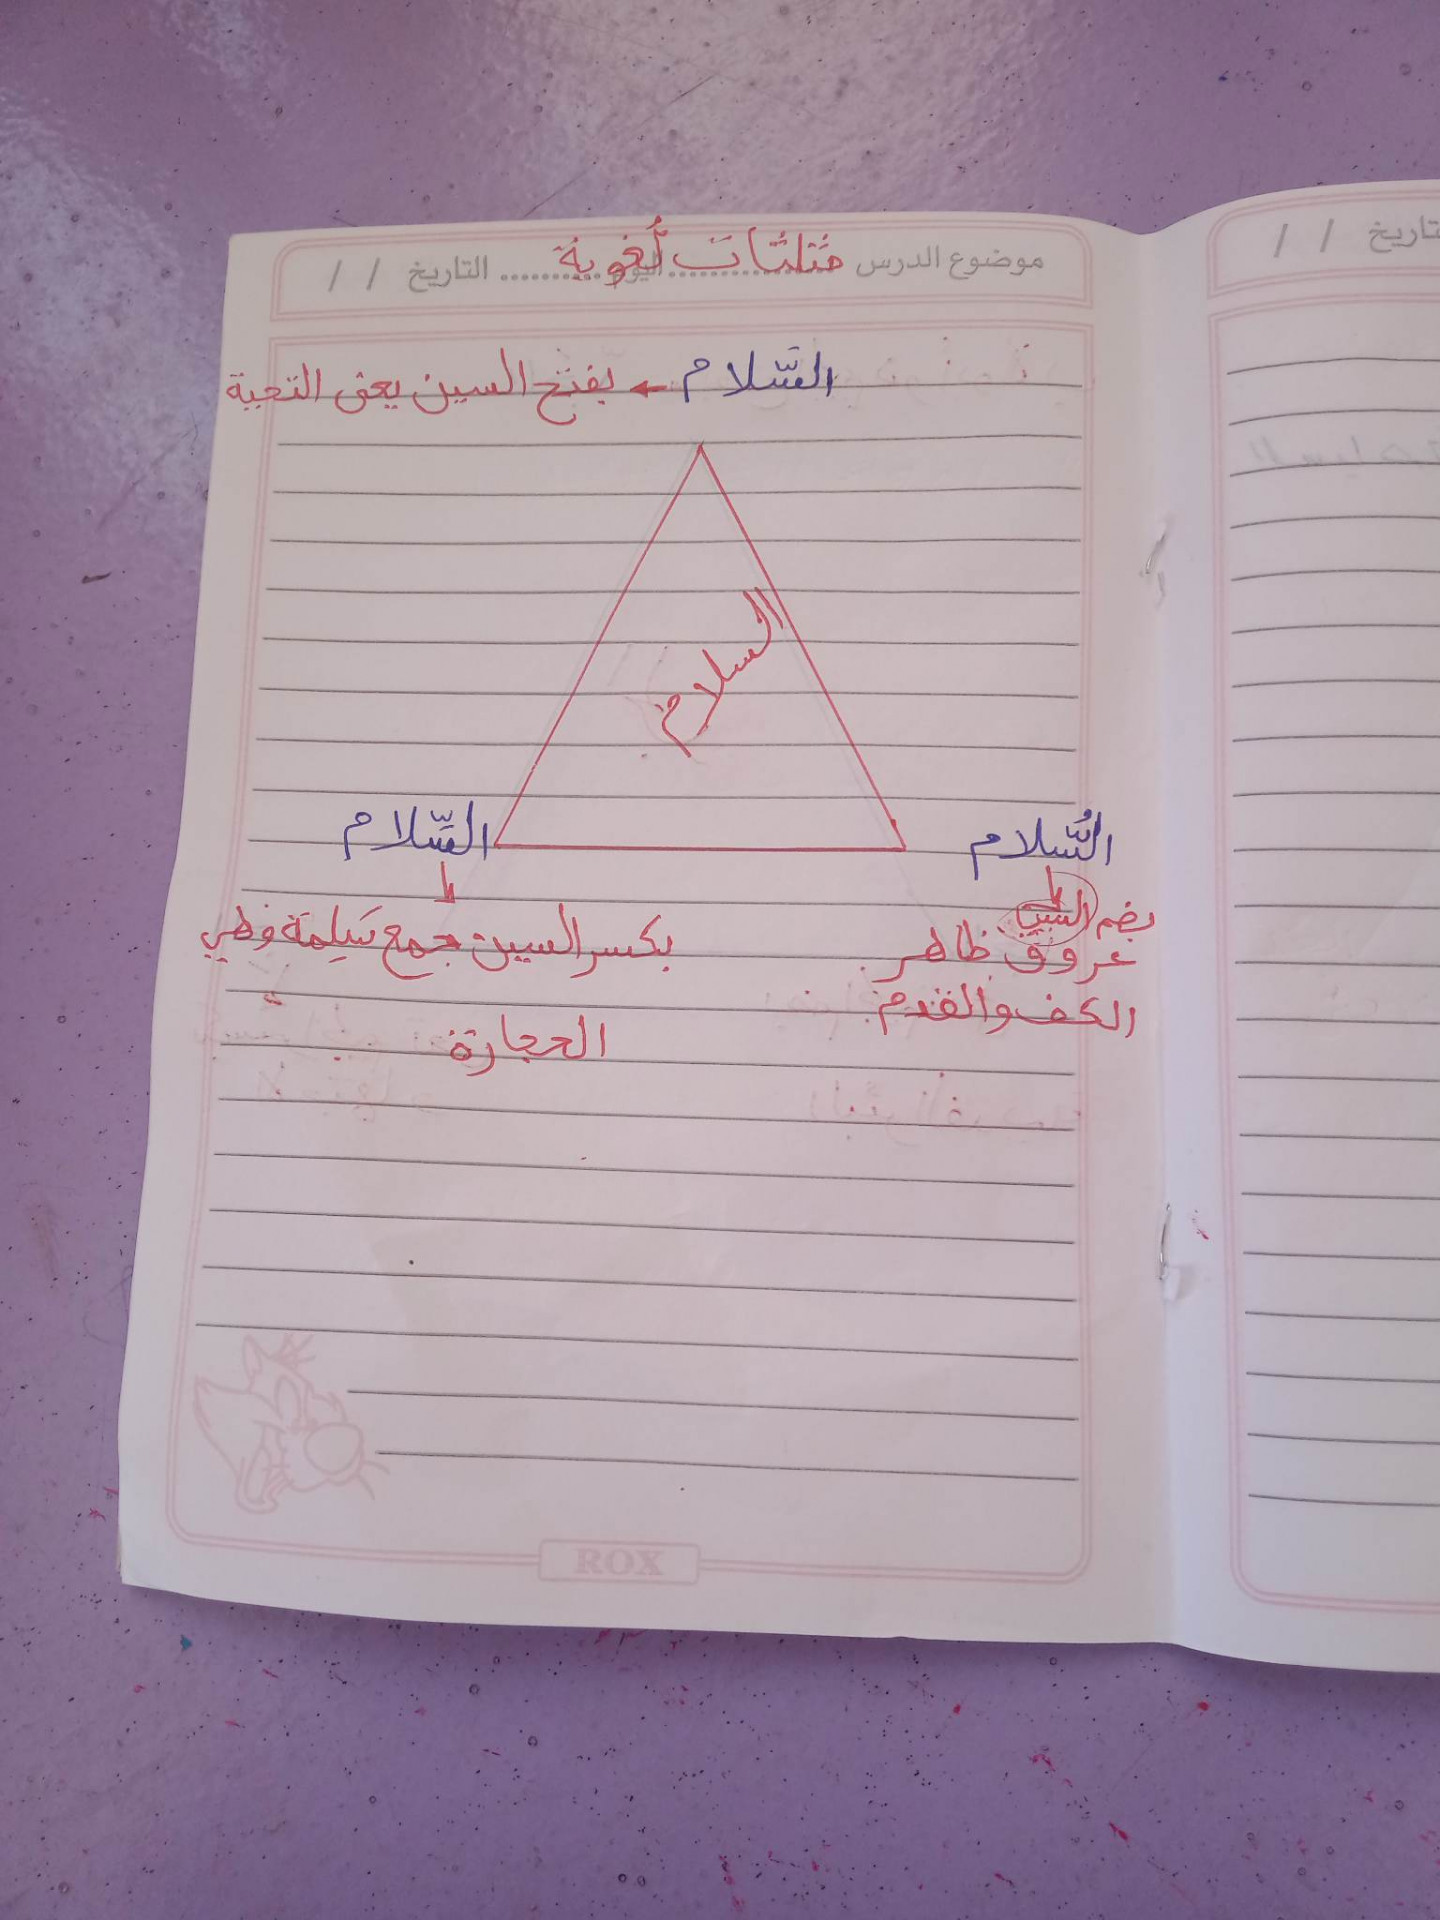 موضوع الدرس مُثلثات لُغوية اليوم .......... التاريخ / /
السَّلام ← بفتح السين يعني التحية
السلام
السُّلام
السِّلام
بضم السين
عروق ظاهر
الكف والقدم
بكسر السين جمع سَلِمَة وهي
الحجارة
ROX
التاريخ / /